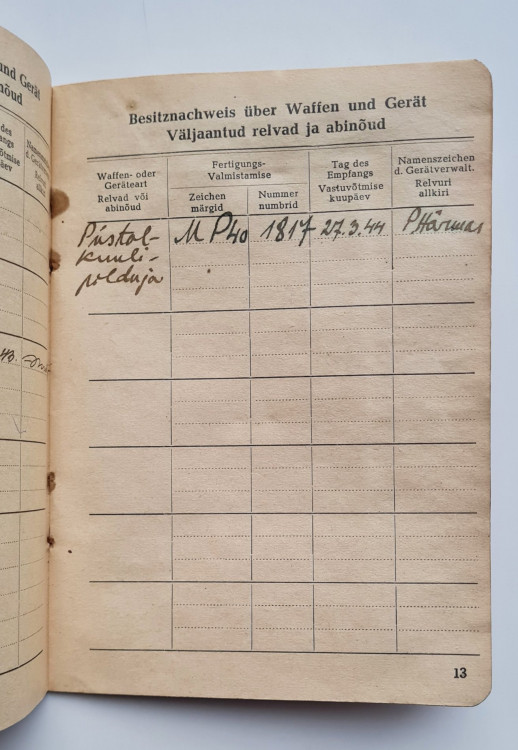 und Gerät
abinõud
des
päev
43.
Besitznachweis über Waffen und Gerät
Väljaantud relvad ja abinõud
Waffen- oder
Geräteart
Relvad või
abinõud
Fertigungs-
Valmistamise
Zeichen
märgid
Nummer
numbrid
Tag des
Empfangs
Vastuvõtmise
kuupäev
Namenszeichen
d. Gerätverwalt.
Relvuri
allkiri
Püstol-
kuuli-
pilduja
M P40
1817
27.3.44
P Härmas
13